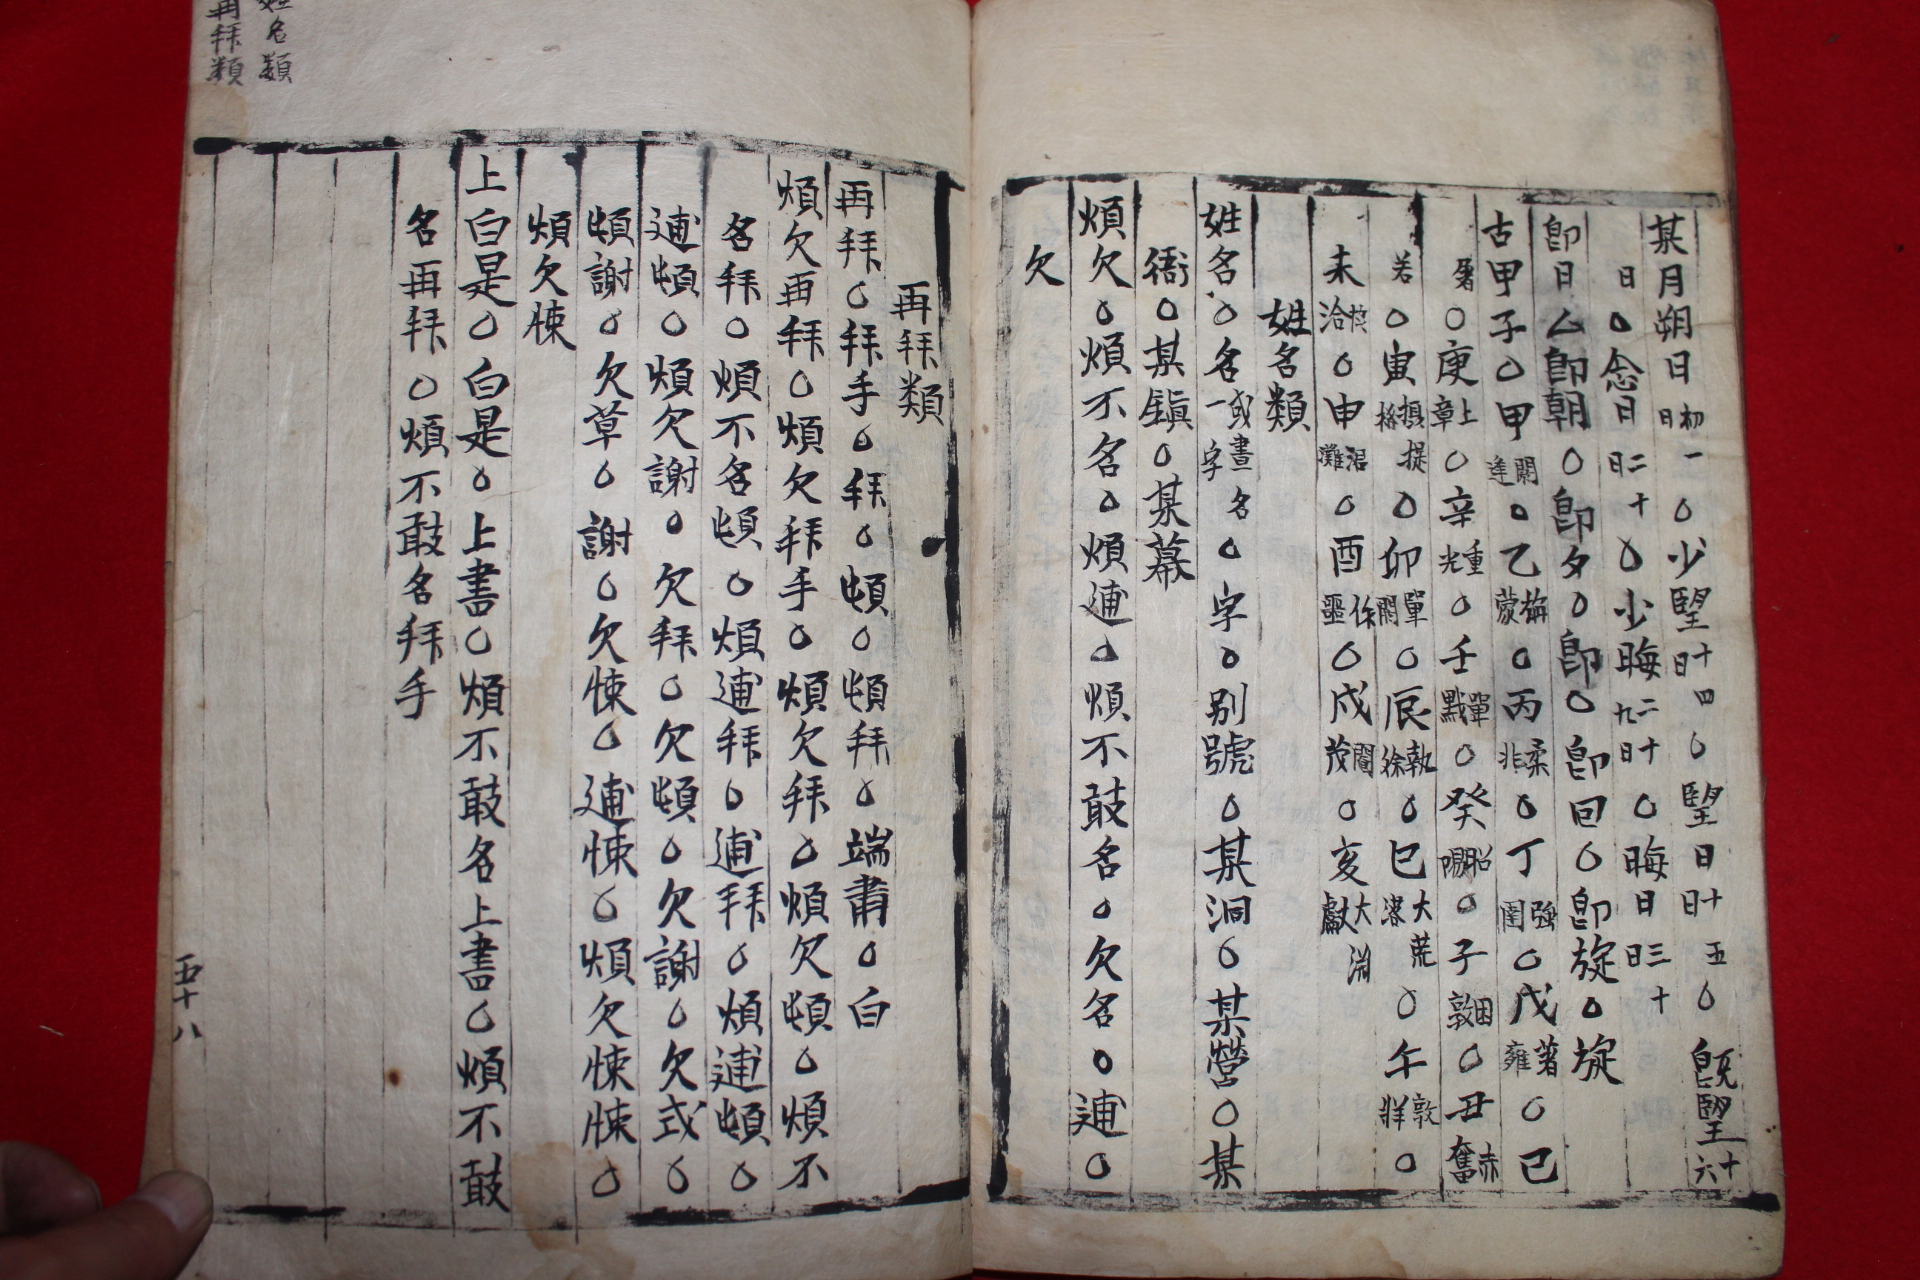 某月朔日初一日○少望十四日○望日十五日○既望十六
日○念日二十日○少晦二十九日○晦日三十日
卽日○卽朝○卽夕○卽○卽回○卽旋○旋
古甲子○甲閼逢○乙旃蒙○丙柔非○丁強圉○戊著雍○己
屠○庚上章○辛重光○壬單戰○癸昭陽○子困敦○丑赤奮
若○寅攝提格○卯單閼○辰執徐○巳大荒落○午敦牂○
未協洽○申涒灘○酉作噩○戌閹茂○亥大淵獻
姓名類
姓名○名或一字畫名○字○別號○某洞○某營○某
衙○某鎭○某幕
煩欠○煩不名○煩逋○煩不敢名○欠名○逋○
欠
再拜類
再拜○拜手○拜○頓○頓拜○端肅○白
煩欠再拜○煩欠拜手○煩欠拜○煩欠頓○煩不
名拜○煩不名頓○煩逋拜○逋拜○煩逋頓○
逋頓○煩欠謝○欠拜○欠頓○欠謝○欠式○
頓謝○欠草○謝○欠悚○逋悚○煩欠悚悚○
煩欠悚
上白是○白是○上書○煩不敢名上書○煩不敢
名再拜○煩不敢名拜手
姓名類
再拜類
五十八